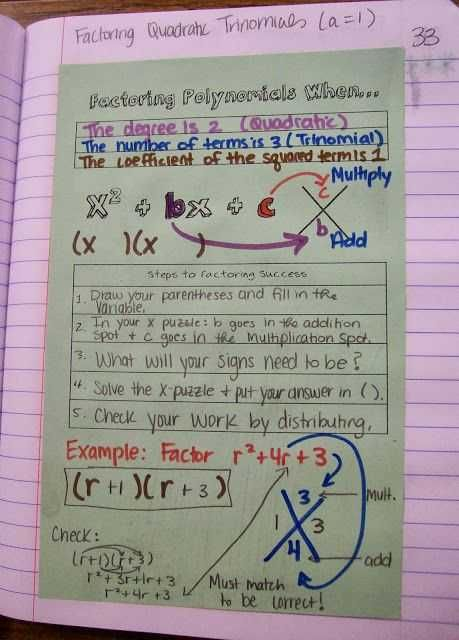 Factoring Quadratic Trinomials (a=1)
33
Factoring Polynomials When...
The degree is 2 (Quadratic)
The number of terms is 3 (Trinomial)
The coefficient of the squared term is 1
x² + bx + c
Multiply
c
b
Add
(x )(x )
Steps to Factoring Success
1. Draw your parentheses and fill in the
variable.
2. In your x puzzle: b goes in the addition
spot + c goes in the multiplication spot.
3. What will your signs need to be?
4. Solve the x-puzzle + put your answer in ( ).
5. Check your work by distributing.
Example: Factor r²+4r+3
(r+1)(r+3)
3
Mult.
1
3
4
add
Check:
(r+1)(r+3)
r²+3r+1r+3
r²+4r+3
Must match
to be correct!